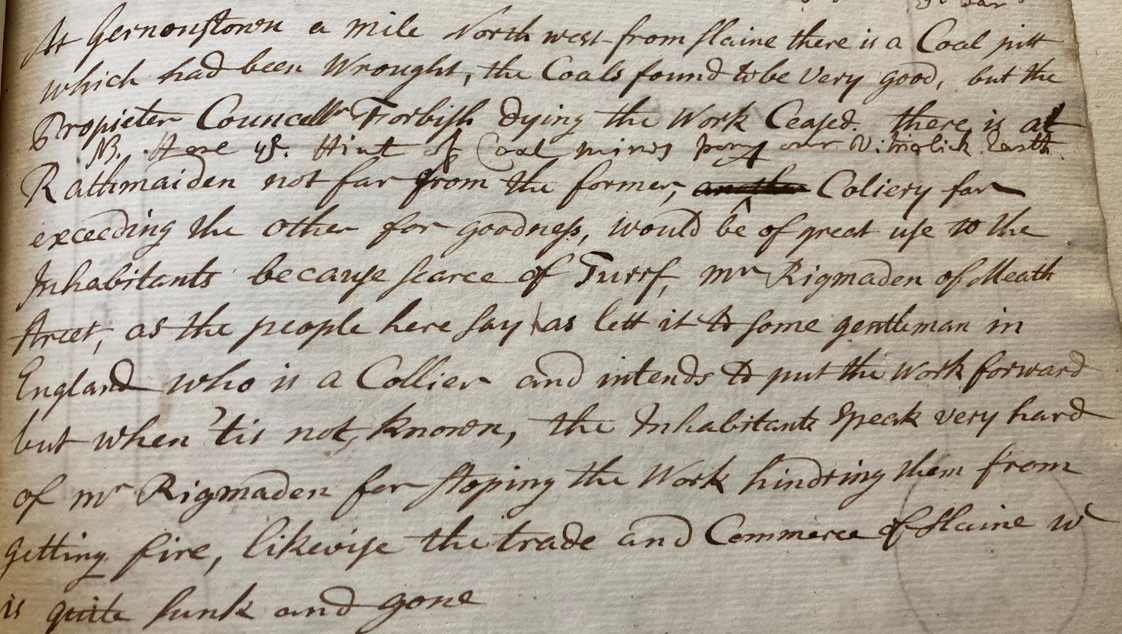 At Gernonstown a mile North west from Slaine there is a Coal pitt
which had been Wrought, the Coals found to be very good, but the
Propieter Councellr Forbish dying the Work Ceased. there is at
NB. Here is Hint of Coal mines our Vitriolick Earth
Rathmaiden not far from the former, another Coliery far
exceeding the other for goodness, would be of great use to the
Inhabitants because scarce of Turff, mr Rigmaden of Meath
street, as the people here say as lett it to some gentleman in
England who is a Collier and intends to put the Work forward
but when 'tis not known, the Inhabitants speak very hard
of mr Rigmaden for stoping the Work hindring them from
getting fire, likewise the trade and Commerce of Slaine wc
is quite sunk and gone